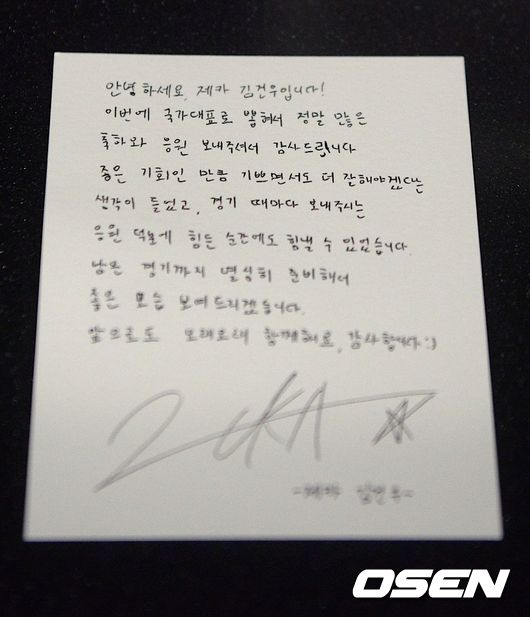 안녕하세요, 제카 김건우입니다!
이번에 국가대표로 뽑혀서 정말 많은
축하와 응원 보내주셔서 감사드립니다
좋은 기회인 만큼 기쁘면서도 더 잘해야겠다는
생각이 들었고, 경기 때마다 보내주시는
응원 덕분에 힘든 순간에도 힘낼 수 있었습니다.
남은 경기까지 열심히 준비해서
좋은 모습 보여드리겠습니다.
앞으로도 오래오래 함께해요, 감사합니다 :)
ZEKA
-제카 김건우-
OSEN